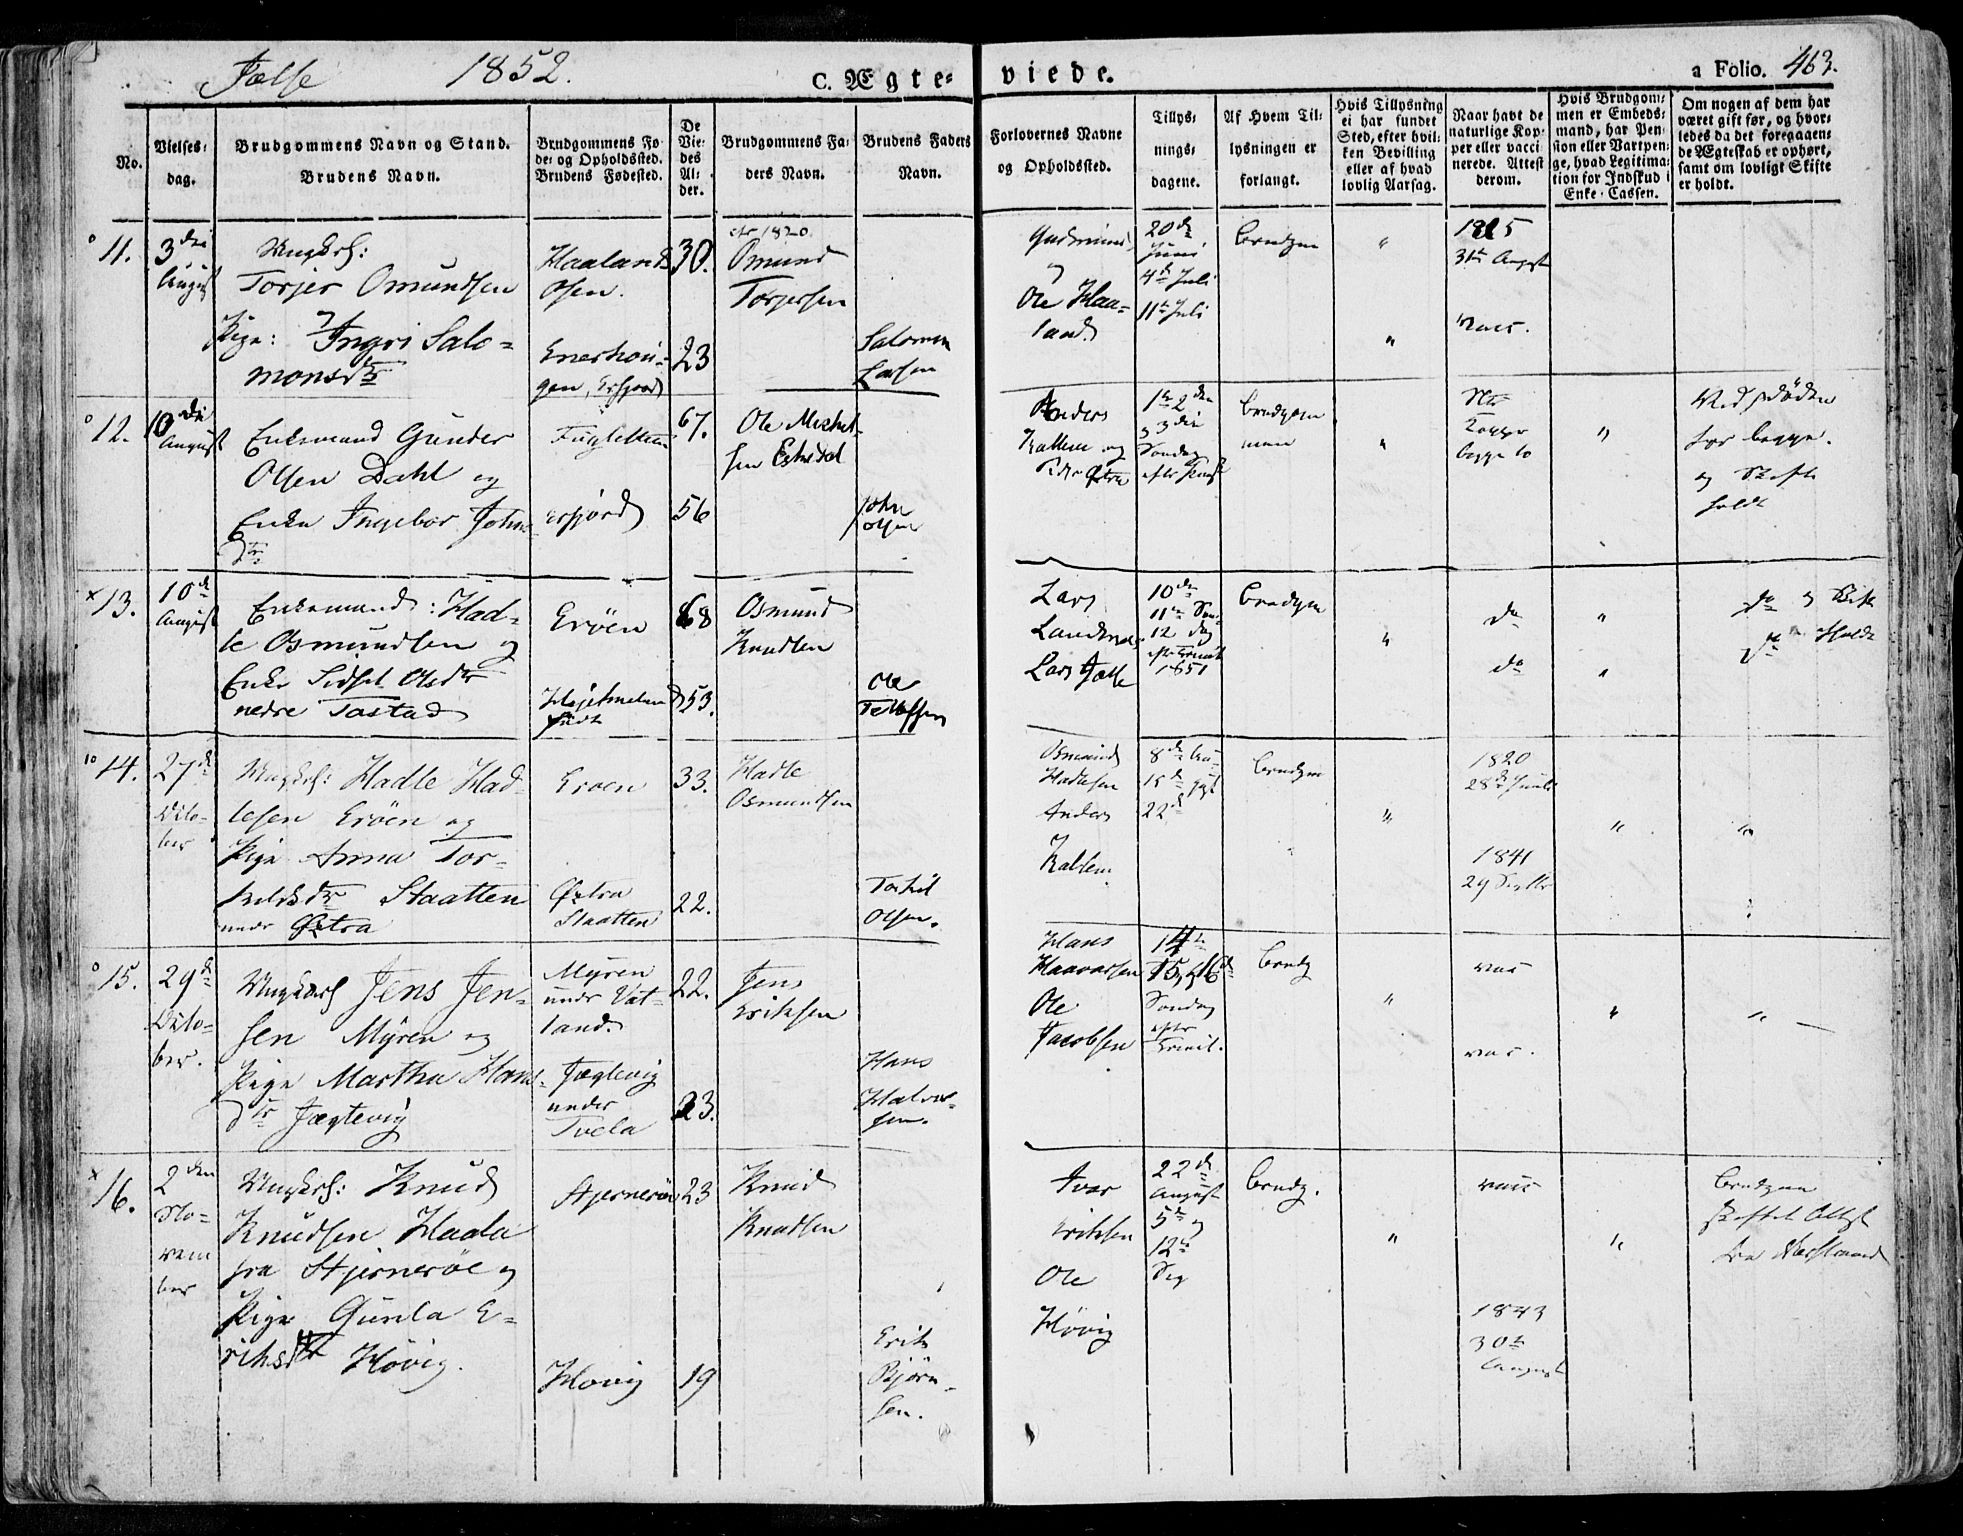 Jælse 1852.
C. Ægte-
viede.
a Folio. 463.
No.
Vielses-
dag.
Brudgommens Navn og Stand.
Brudens Navn.
Brudgommens Fø-
de- og Opholdssted.
Brudens Fødested.
De
Vie-
des
Al-
der.
Brudgommens Fa-
ders Navn.
Brudens Faders
Navn.
Forlovernes Navne
og Opholdssted.
Tillys-
nings-
dagene.
Af Hvem Til-
lysningen er
forlangt.
Hvis Tillysning
ei har fundet
Sted, efter hvil-
ken Bevilling
eller af hvad
lovlig Aarsag.
Naar havt de
naturlige Kop-
per eller vacci-
nerede. Attest
derom.
Hvis Brudgom-
men er Embeds-
mand, har Pen-
sion eller Vartpen-
ge, hvad Legitima-
tion for Indskud i
Enke-Cassen.
Om nogen af dem har
været gift før, og hvor-
ledes da det foregaaen-
de Ægteskab er ophørt,
samt om lovligt Skifte
er holdt.
11.
3die
August
Ungkrl:
Torjer Omundsen
Pige: Ingri Salo-
monsdtr
Haaland
Osen.
30.
23
Omund
Torjersen
Salomon
Larsen
Ole Haa-
land.
20de
Juni
4de Juli
11te Juli
31te August
vacc.
12.
10de
August
Enkemand Gunder
Olsen Dahl og
Enke Ingebor John-
dtr
67.
56
John
Olsen
Anders
og 3die
Søndag
Ved Døden
for begge.
og Skifte
holdt
13.
10de
August
Enkemand: Had-
le Osmundsen og
Enke Sidsel Olsdtr
nedre Tastad
Erøen
68
53.
Osmund
Knudsen
Ole
Lars
10de
12 dag
1851
do
do
14.
27de
Octo-
ber
Ungkrl: Hadle Had-
lesen Erøen og
Pige Anna Tor-
kildsdtr Staatten
under Østra
Eroen
Østra
Staatten
33.
22.
Hadle
Osmundsen
Torkil
Olsen.
Osmund
Hadlesen
Anders
8de Au-
15de gust
22de
1820
1841
29 Septbr
15.
29de
Octo-
ber.
Ungkarl Jens Jen-
sen Myren og
Pige Martha Hans-
dtr Jægtevig
Myren
under Vat-
land.
Jægtevig
under
Tvela
22.
23.
Jens
Eriksen
Hans
Halvor-
sen.
Hans
Haavarsen
Ole
Jacobsen
14de
15, 16de
Søndag
efter
Trinit.
Brudg
vac
vac.
16.
2den
No-
vem
ber
Ungkrl: Knud
Knudsen Haala
fra Stjernerøe og
Pige Gunla E-
riksdtr Høvig.
Stjernerøe
Hovig
23
19
Knud
Knudsen
Erik
Bjørn-
sen.
Ivar
Eriksen
Ole
Høvig
22de
August
5te og
12te
Sep
Brudg.
vacc
1843
30te
August